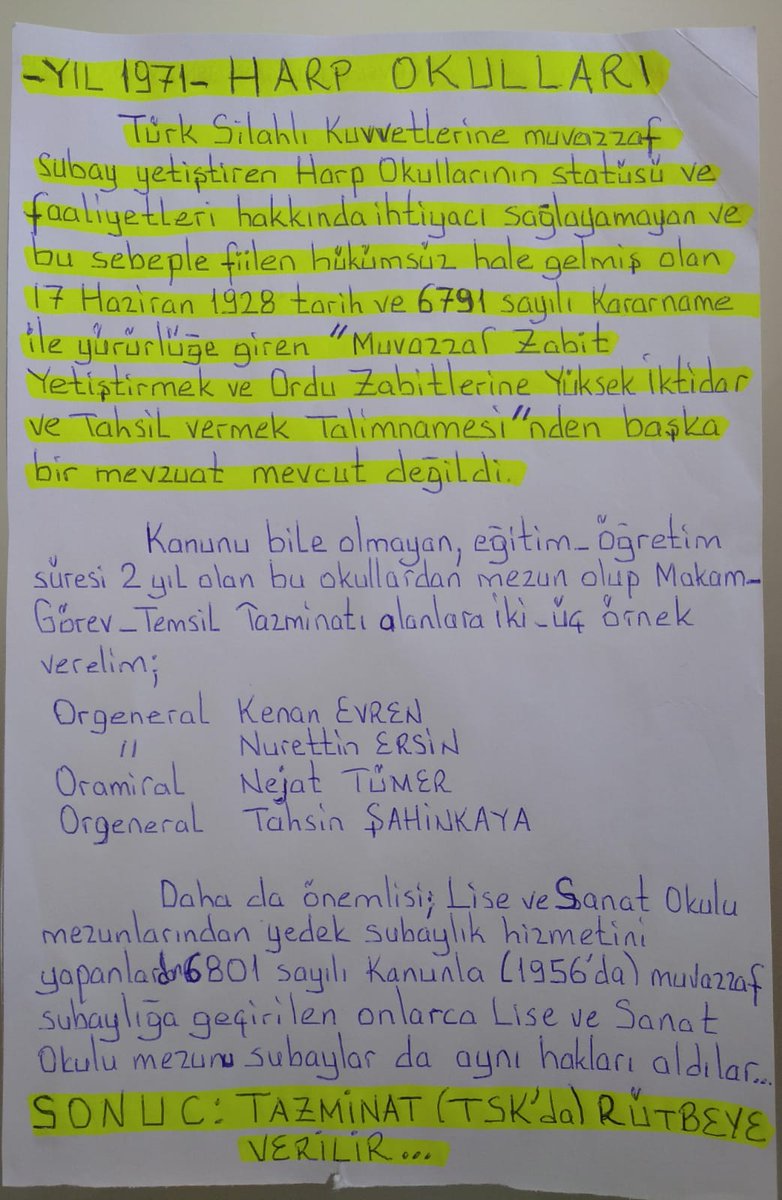 -YIL 1971- HARP OKULLARI
Türk Silahlı Kuvvetlerine muvazzaf
subay yetiştiren Harp Okullarının statüsü ve
faaliyetleri hakkında ihtiyacı sağlayamayan ve
bu sebeple fiilen hükümsüz hale gelmiş olan
17 Haziran 1928 tarih ve 6791 sayılı Kararname
ile yürürlüğe giren "Muvazzaf Zabit
Yetiştirmek ve Ordu Zabitlerine Yüksek iktidar
ve Tahsil vermek Talimnamesi"nden başka
bir mevzuat mevcut değildi.
Kanunu bile olmayan, eğitim-öğretim
süresi 2 yıl olan bu okullardan mezun olup Makam-
Görev-Temsil Tazminatı alanlara iki-üç örnek
verelim;
Orgeneral Kenan EVREN
" Nurettin ERSİN
Oramiral Nejat TÜMER
Orgeneral Tahsin ŞAHİNKAYA
Daha da önemlisi; Lise ve Sanat Okulu
mezunlarından yedek subaylık hizmetini
yapanlardan 6801 sayılı Kanunla (1956'da) muvazzaf
subaylığa geçirilen onlarca Lise ve Sanat
Okulu mezunu subaylar da aynı hakları aldılar...
SONUC: TAZMİNAT (TSK'da) RÜTBEYE
VERİLİR...